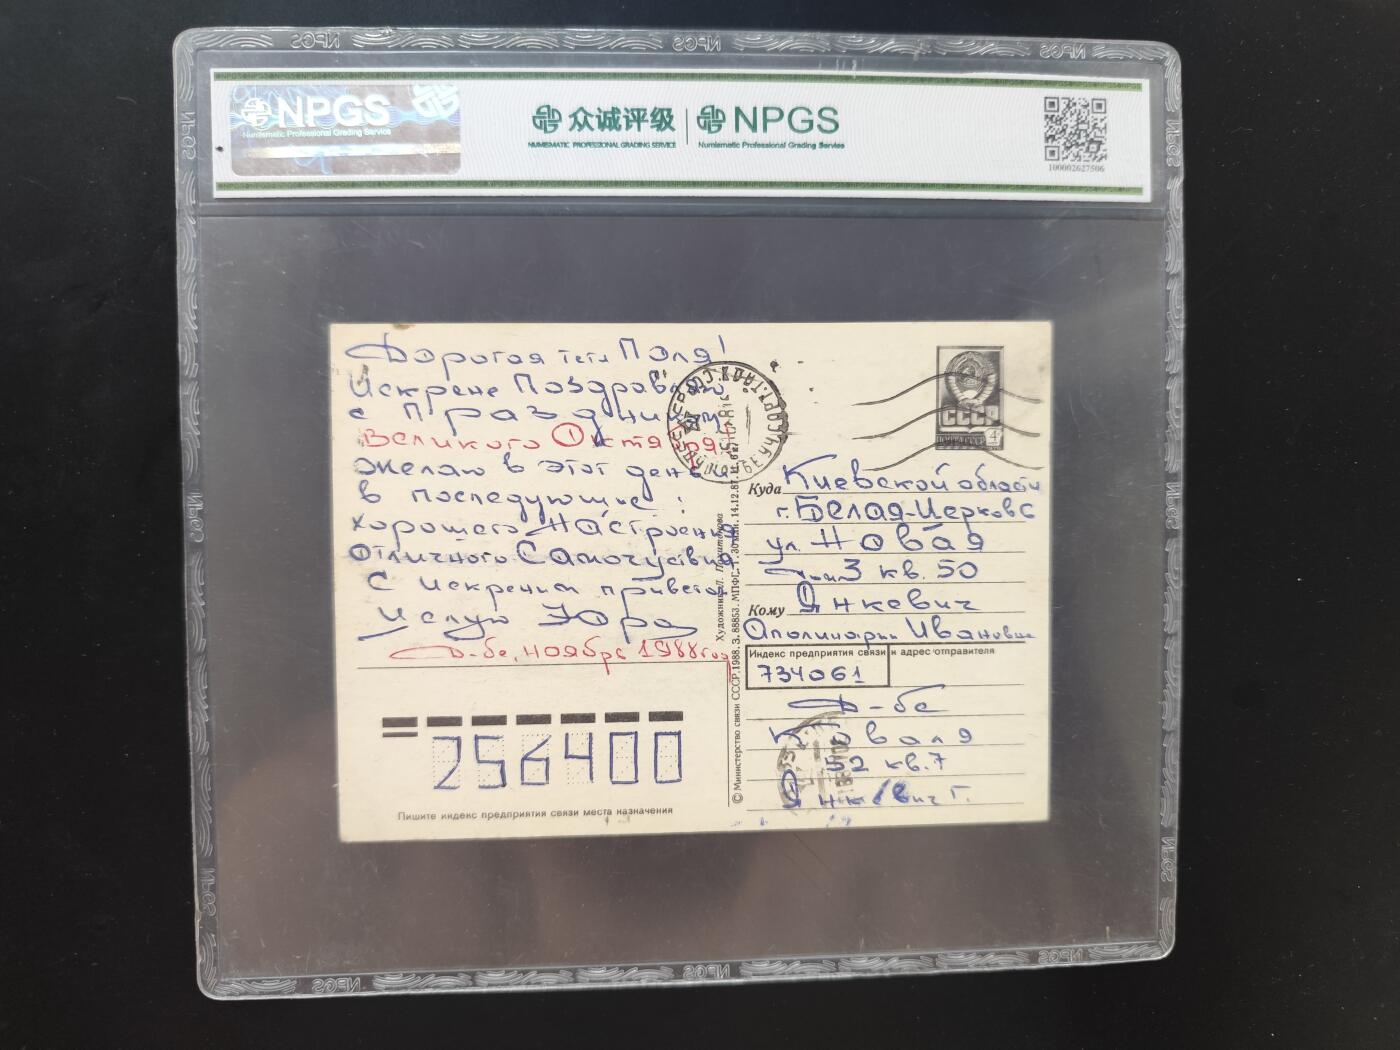 NPGS
Numismatic Professional Grading Service
众诚评级
NUMISMATIC PROFESSIONAL GRADING SERVICE
NPGS
Numismatic Professional Grading Service
100002627506
Дорогая тетя Поля!
Искрене Поздравляю
с Праздником
Великого Октября
Желаю в этот день и
в последующие:
хорошего Настроения
отличного Самочуствия
С искреним приветом
Целую Юра
Д-бе, ноябрь 1988 год
256400
Пишите индекс предприятия связи места назначения
© Министерство связи СССР, 1988. З. 88853. МПФГ.
14.12.87.
Художник Л.
СССР
ПОЧТА СССР
4
Куда Киевской области
г. Белая-Церковь
ул. Новая
3 кв. 50
Кому Янкевич
Аполинарии Ивановне
Индекс предприятия связи и адрес отправителя
734061
Д-бе
52 кв. 7
Янкевич Г.